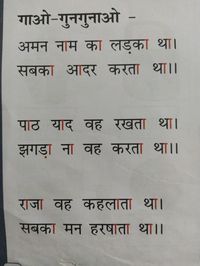 गाओ-गुनगुनाओ -
अमन नाम का लड़का था।
सबका आदर करता था।।
पाठ याद वह रखता था।
झगड़ा ना वह करता था।।
राजा वह कहलाता था।
सबका मन हरषाता था।।